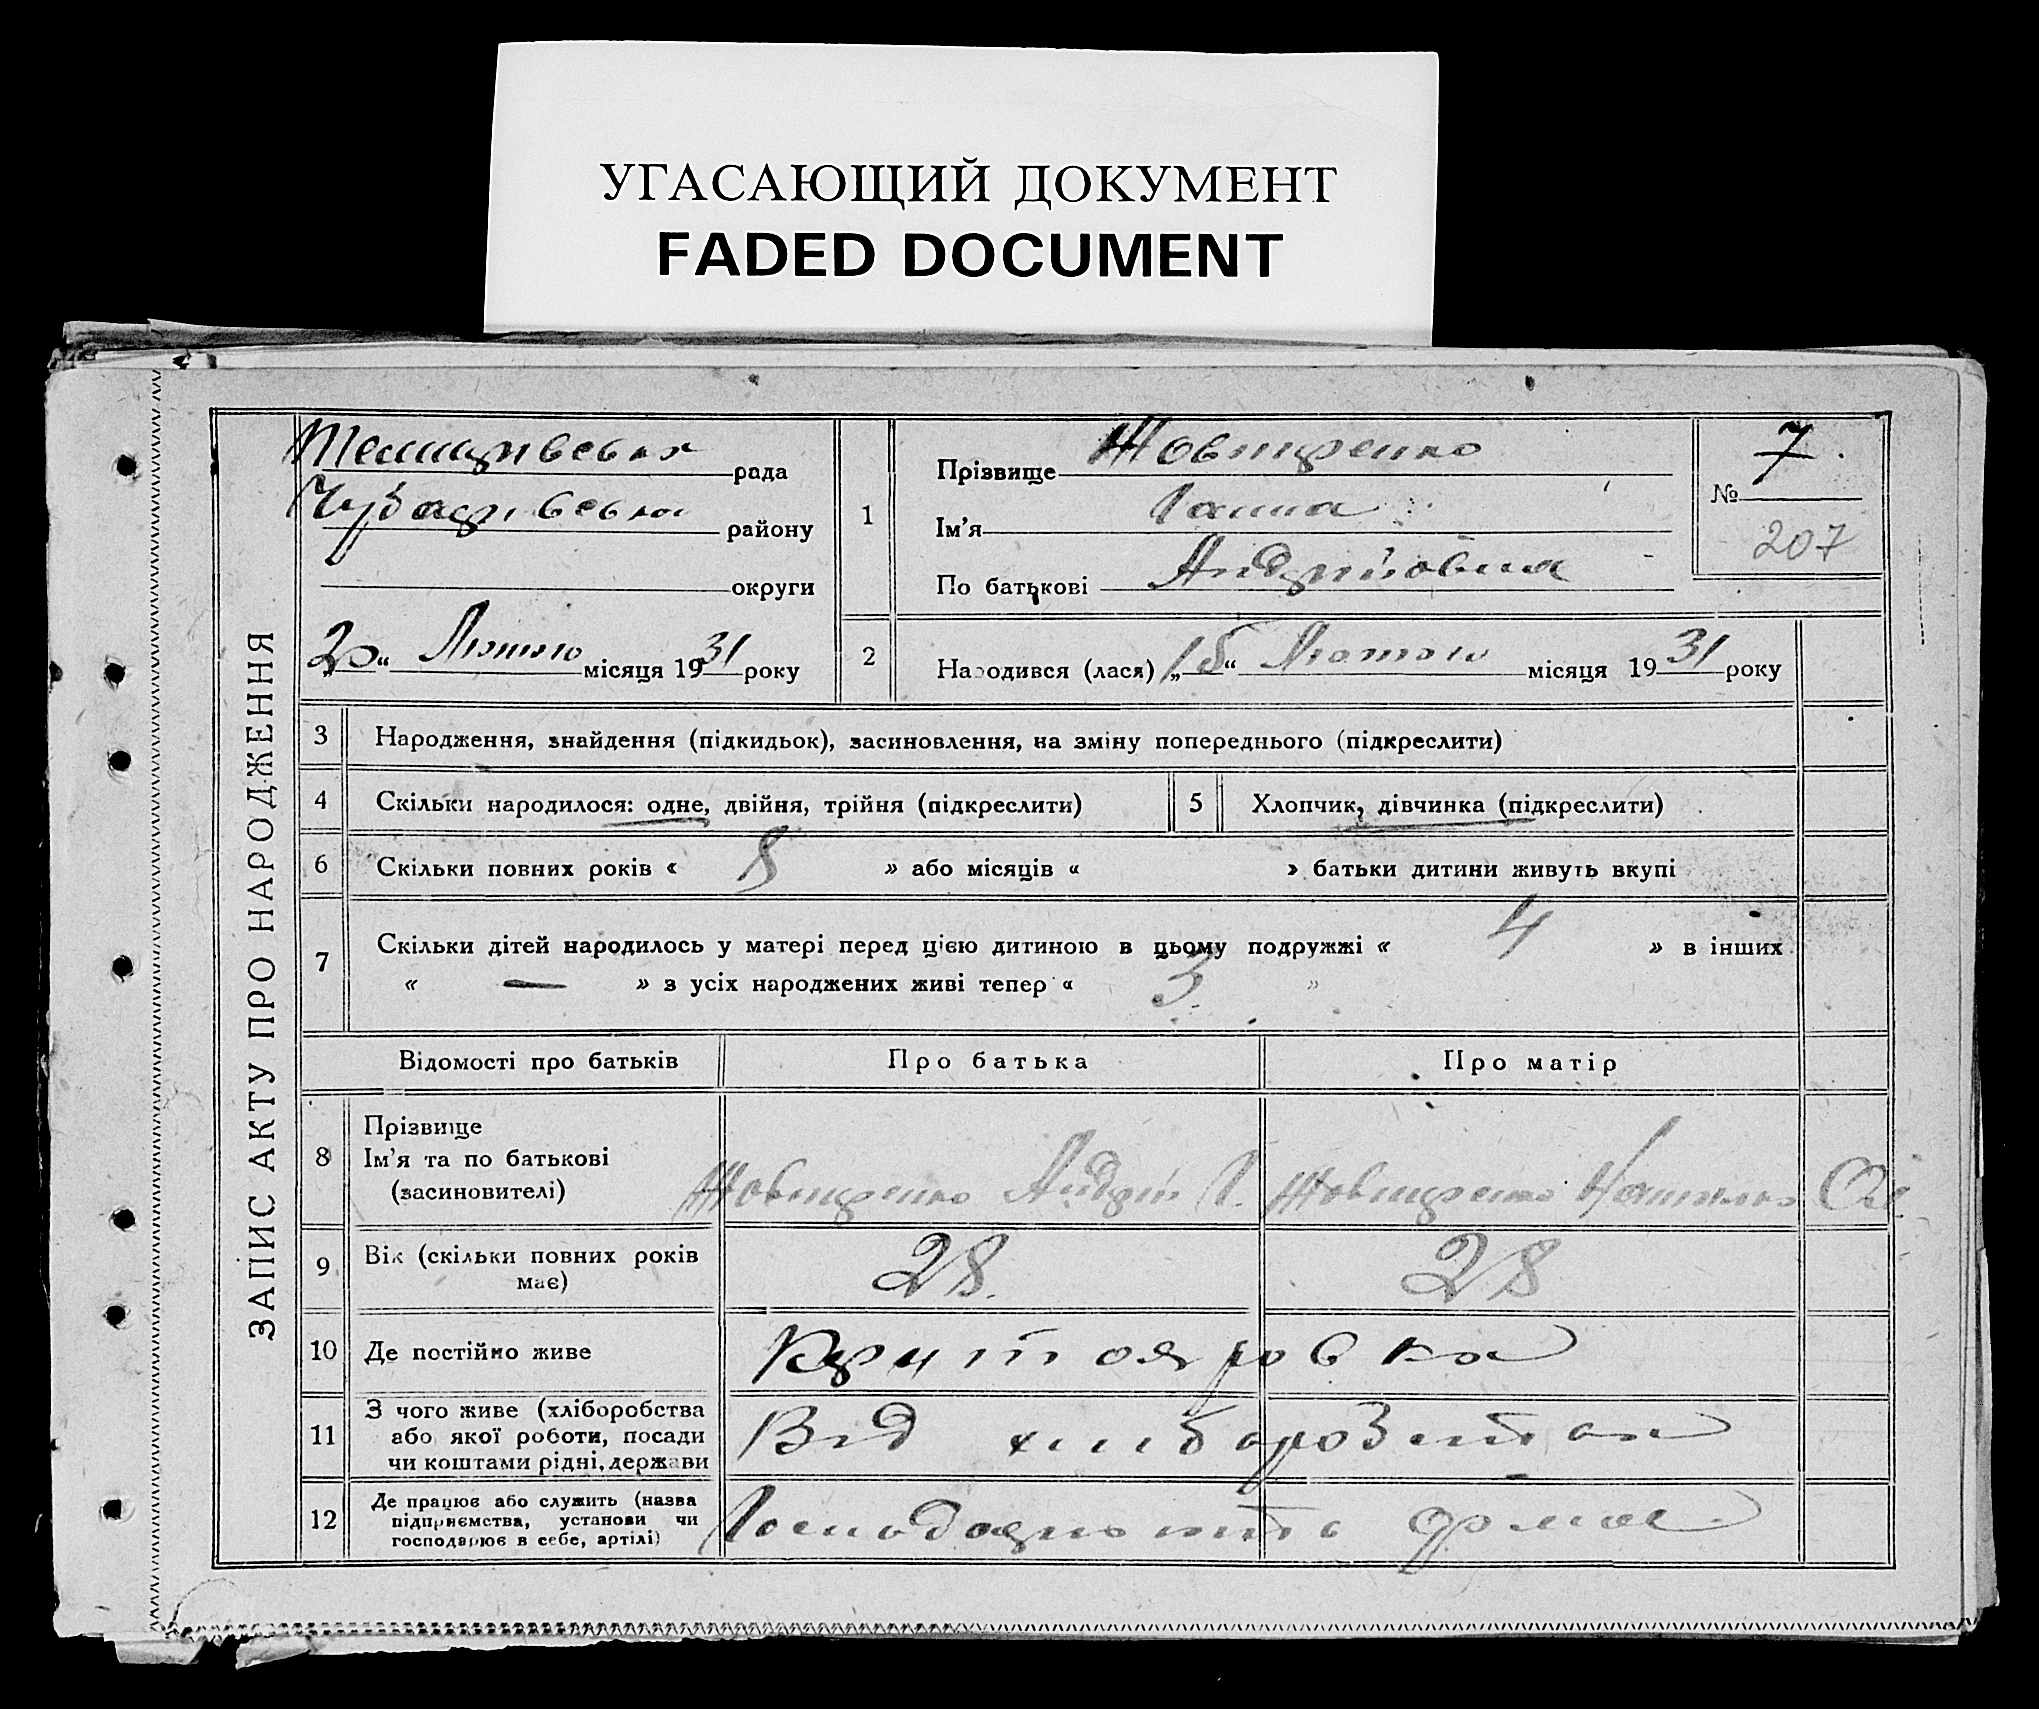 УГАСАЮЩИЙ ДОКУМЕНТ
FADED DOCUMENT
ЗАПИС АКТУ ПРО НАРОДЖЕННЯ
рада
району
округи
20 “ Лютого місяця 1931 року
1
Прізвище Жовтяренко
Ім’я Ганна
По батькові Андрийовна
№ 7.
207
2
Народився (лася) „15“ Лютого місяця 1931 року
3 Народження, знайдення (підкидьок), засиновлення, на зміну попереднього (підкреслити)
4 Скільки народилося: одне, двійня, трійня (підкреслити)
5 Хлопчик, дівчинка (підкреслити)
6 Скільки повних років « 8 » або місяців « » батьки дитини живуть вкупі
7 Скільки дітей народилось у матері перед цією дитиною в цьому подружжі « 4 » в інших
« — » з усіх народжених живі тепер « 3 »
Відомості про батьків Про батька Про матір
8 Прізвище
Ім’я та по батькові
(засиновителі)
Андрій Г.
9 Вік (скільки повних років
має)
28. 28
10 Де постійно живе Крутояровка
11 З чого живе (хліборобства
або якої роботи, посади
чи коштами рідні, держави
Від
12 Де працює або служить (назва
підприємства, установи чи
господарює в себе, артілі)